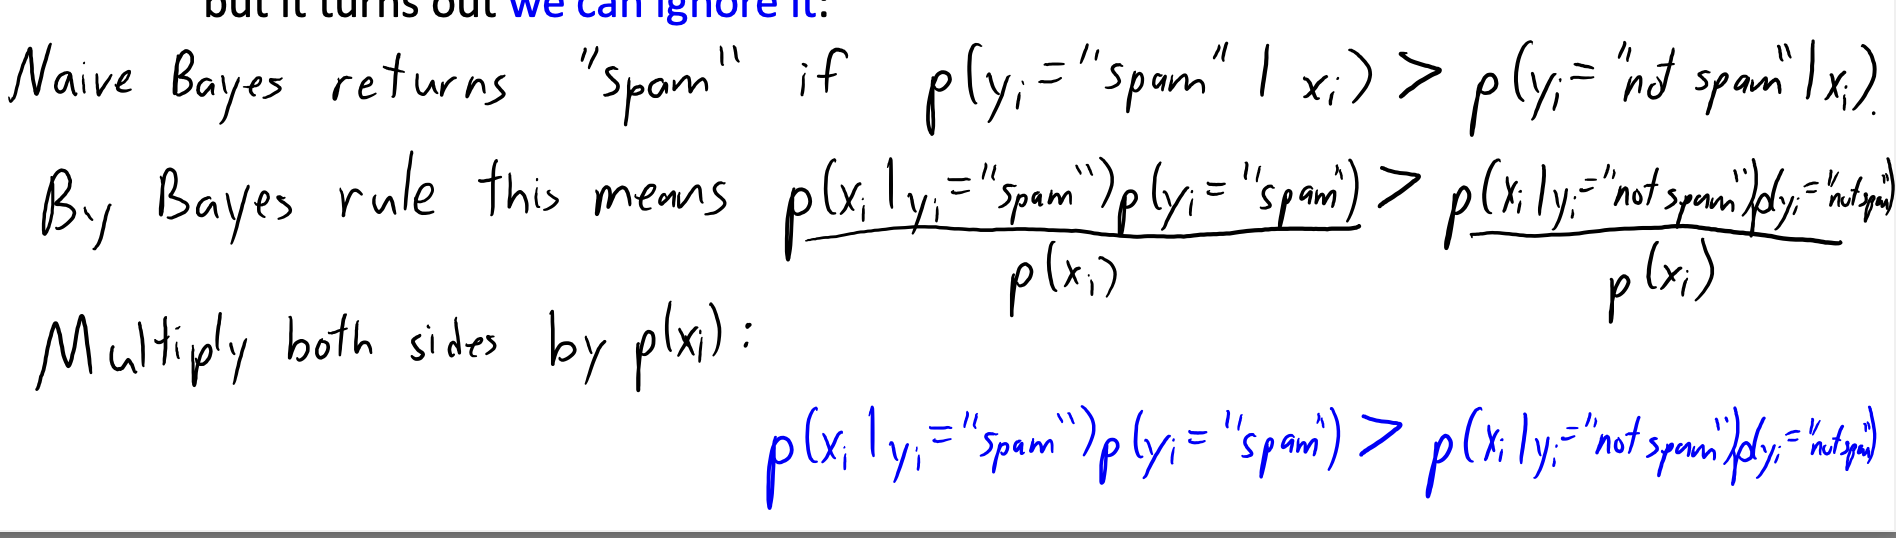 but it turns out we can ignore it:
Naive Bayes returns "spam" if p(y_i = "spam" | x_i) > p(y_i = "not spam" | x_i).
By Bayes rule this means p(x_i | y_i = "spam") p(y_i = "spam") > p(x_i | y_i = "not spam") p(y_i = "not spam")
p(x_i) p(x_i)
Multiply both sides by p(x_i):
p(x_i | y_i = "spam") p(y_i = "spam") > p(x_i | y_i = "not spam") p(y_i = "not spam")